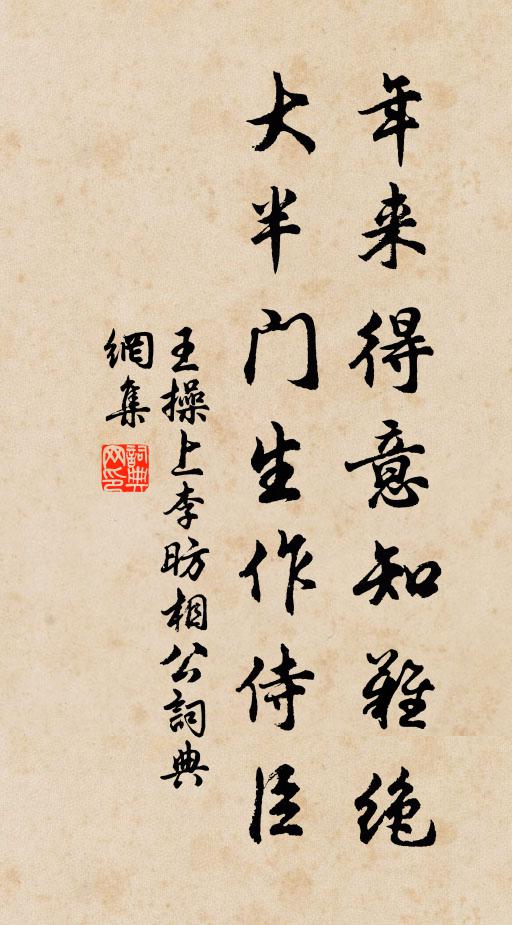 年来得意知難絶
大半门生作侍臣
王操上李昉相公詞典
網集
詞典
网印